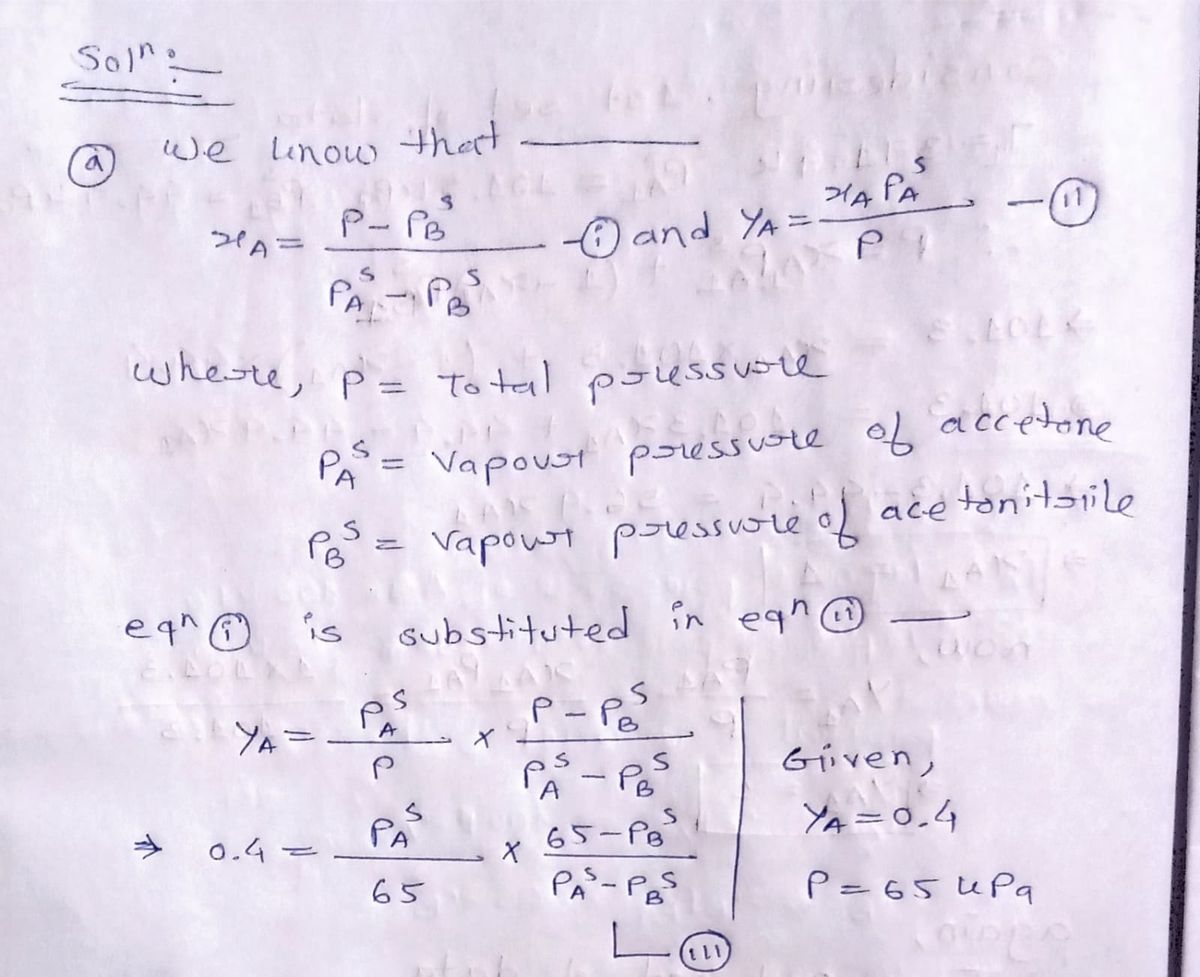 Solⁿ:
ⓐ We know that —
x_A = (P - P_B^S) / (P_A^S - P_B^S) - ⓘ and Y_A = (x_A P_A^S) / P - (ii)
where, P = Total pressure
P_A^S = Vapour pressure of accetone
P_B^S = Vapour pressure of acetonitrile
eqⁿ ⓘ is substituted in eqⁿ (ii) —
Y_A = P_A^S / P × (P - P_B^S) / (P_A^S - P_B^S)
⇒ 0.4 = P_A^S / 65 × (65 - P_B^S) / (P_A^S - P_B^S)
(iii)
Given,
Y_A = 0.4
P = 65 kPa